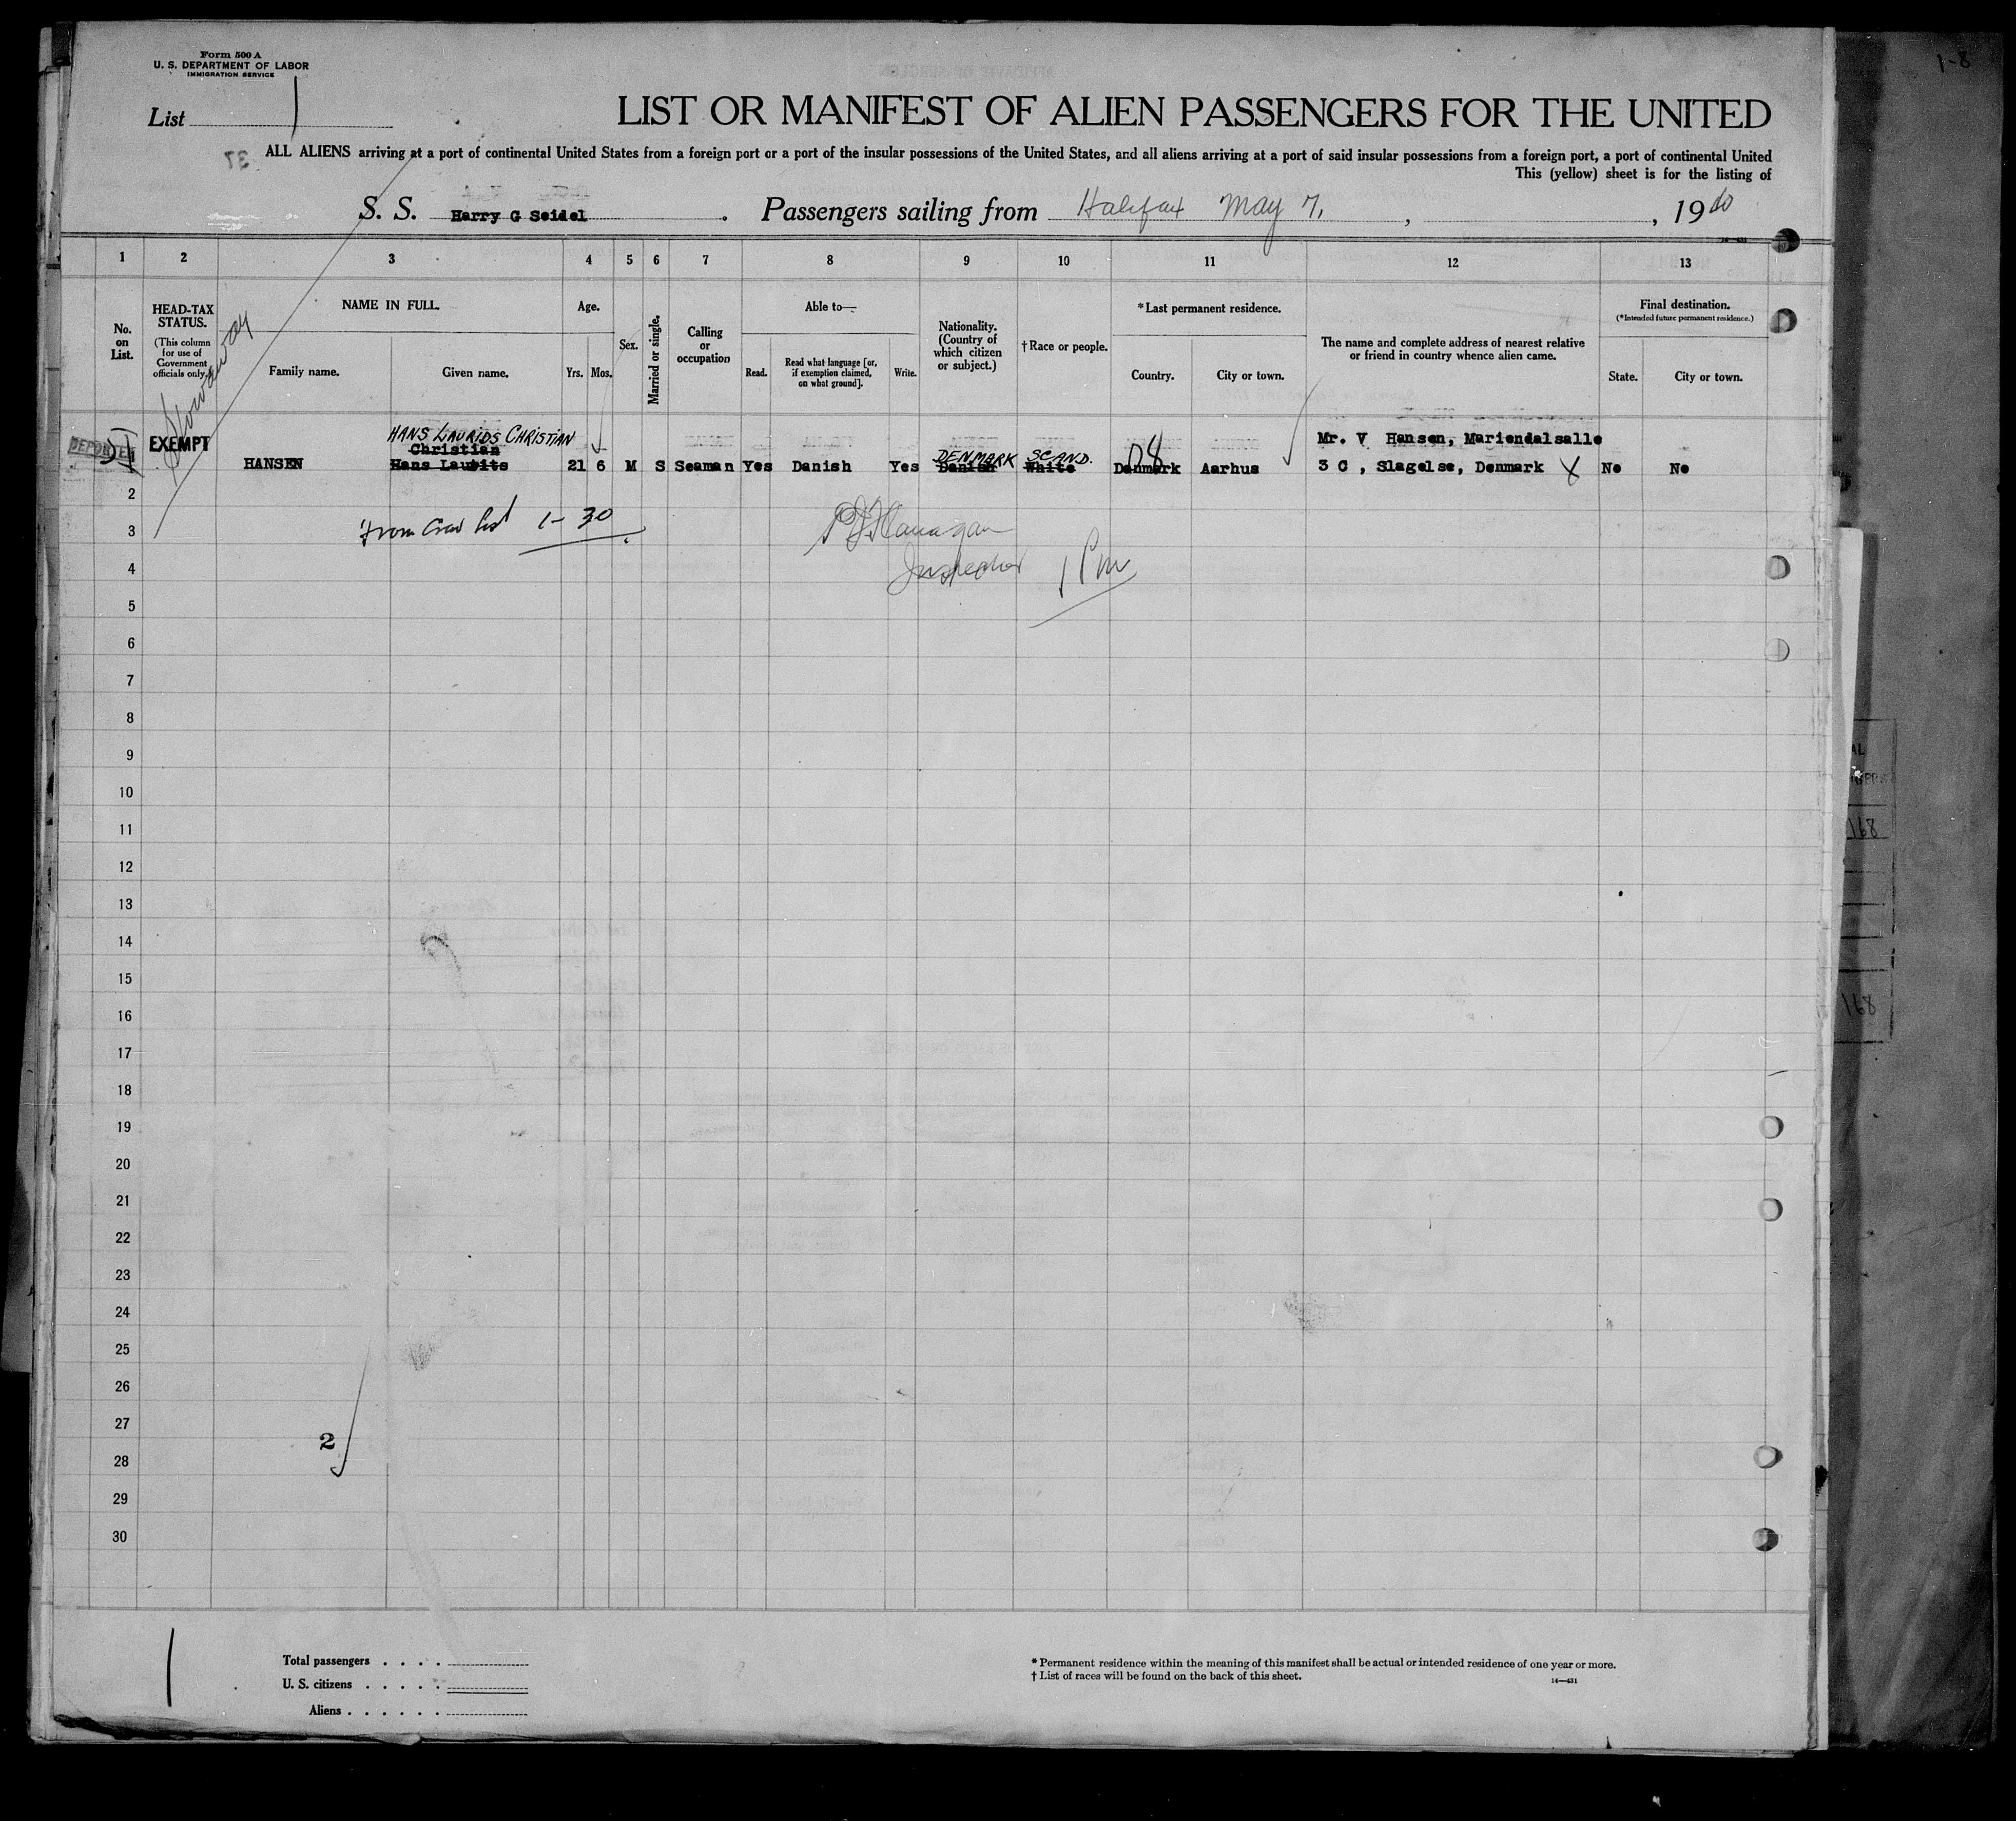 Form 500 A
U. S. DEPARTMENT OF LABOR
IMMIGRATION SERVICE
1-8
List 1
LIST OR MANIFEST OF ALIEN PASSENGERS FOR THE UNITED
37
ALL ALIENS arriving at a port of continental United States from a foreign port or a port of the insular possessions of the United States, and all aliens arriving at a port of said insular possessions from a foreign port, a port of continental United
This (yellow) sheet is for the listing of
S. S. Harry G Seidel . Passengers sailing from Halifax May 7, , , 19
1 2 3 4 5 6 7 8 9 10 11 12 13
No. on List.
HEAD-TAX STATUS.
(This column for use of Government officials only.)
NAME IN FULL.
Family name.
Given name.
Age.
Yrs. Mos.
Sex.
Married or single.
Calling or occupation
Able to—
Read.
Read what language [or, if exemption claimed, on what ground].
Write.
Nationality. (Country of which citizen or subject.)
† Race or people.
*Last permanent residence.
Country.
City or town.
The name and complete address of nearest relative or friend in country whence alien came.
Final destination.
(*Intended future permanent residence.)
State.
City or town.
Stowaway
DEPORTED
EXEMPT
HANS LAURIDS CHRISTIAN
Christian
DENMARK SCAND.
Mr. V Hansen, Mariendalsalle
1 HANSEN Hans Laurits 21 6 M S Seaman Yes Danish Yes Danish White Denmark Aarhus 3 C , Slagelse, Denmark X No No
2
3 From Crew list 1-30 Flanagan
4 Inspector 1 Pm
5
6
7
8
9
10
11
12
13
14
15
16
17
18
19
20
21
22
23
24
25
26
27
2
28
29
30
168
168
1
Total passengers . . . .
U. S. citizens . . . . .
Aliens . . . . . .
* Permanent residence within the meaning of this manifest shall be actual or intended residence of one year or more.
† List of races will be found on the back of this sheet.
14—431